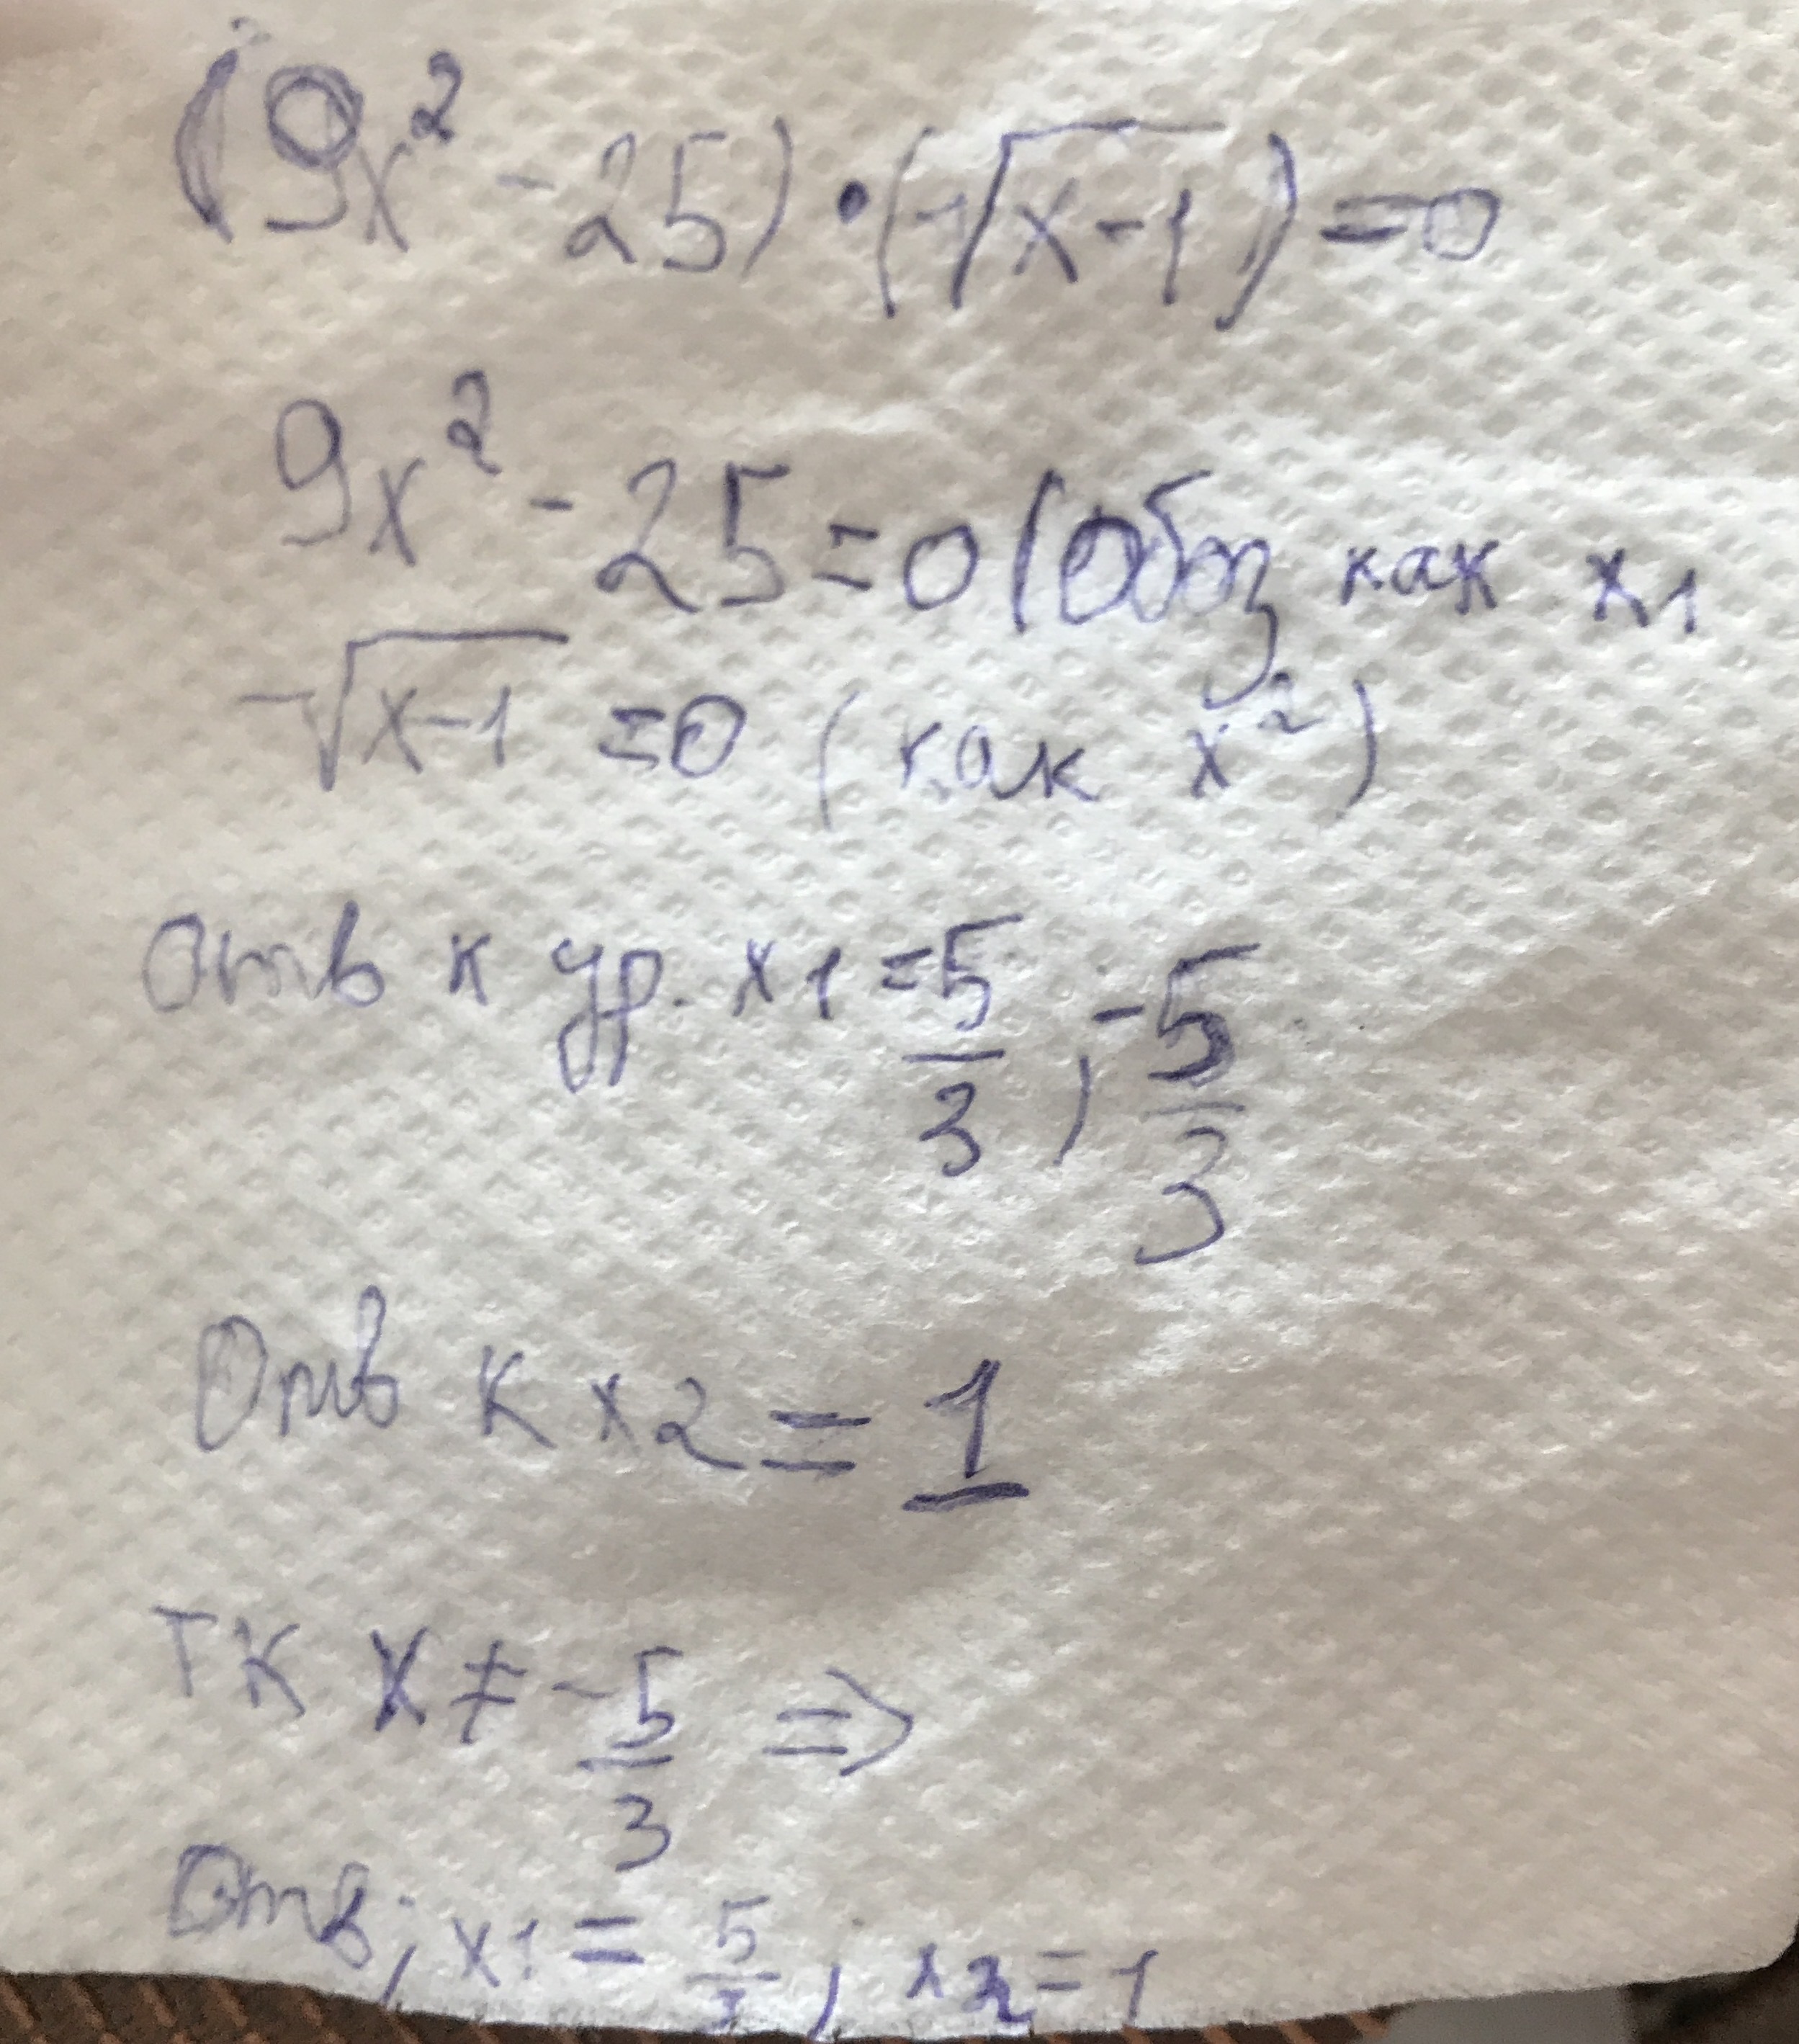 (9x² - 25) · (√x-1) = 0
9x² - 25 = 0 (Обоз как x1
-√x-1 = 0 (как x²)
Отв к ур. x1 = 5/3, -5/3
Отв к x2 = 1
ТК X ≠ -5/3 ⇒
Отв; x1 = 5/3, x2 = 1